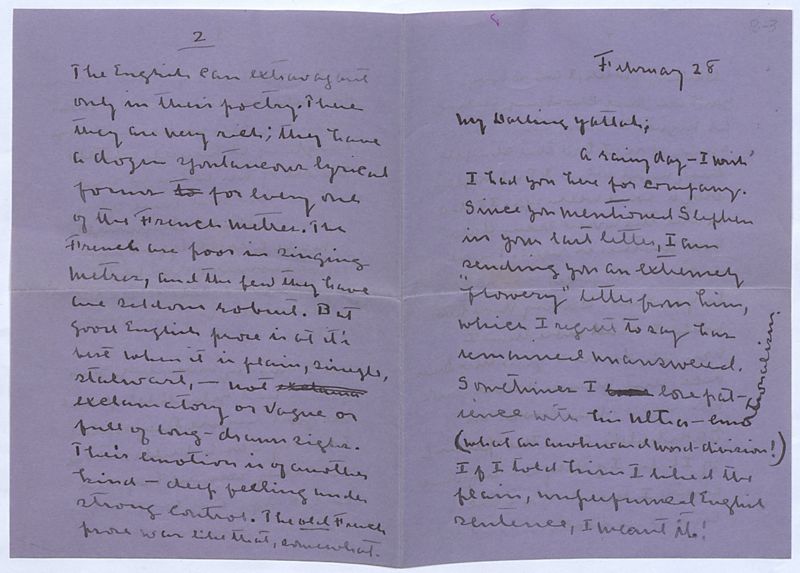 February 28
My Darling Yaltah;
A rainy day – I wish
I had you here for company.
Since you mentioned Stephen
in your last letter, I am
sending you an extremely
"flowery" letter from him,
which I regret to say has
remained unanswered.
Sometimes I lose pat-
ience with his ultra-emotionalism.
(what an awkward word-division!)
If I told him I liked the
plain, unperfumed English
sentence, I meant it!
2
The English can extravagant
only in their poetry. There
they are very rich; they have
a dozen spontaneous lyrical
forms to for every one
of the French metres. The
French are poor in singing
metres, and the few they have
are seldom robust. But
good English prose is at it's
best when it is plain, simple,
stalwart, – not exclama
exclamatory or vague or
full of long-drawn sighs.
Their emotion is of another
kind – deep feeling under
strong control. The old French
prose was like that, somewhat.